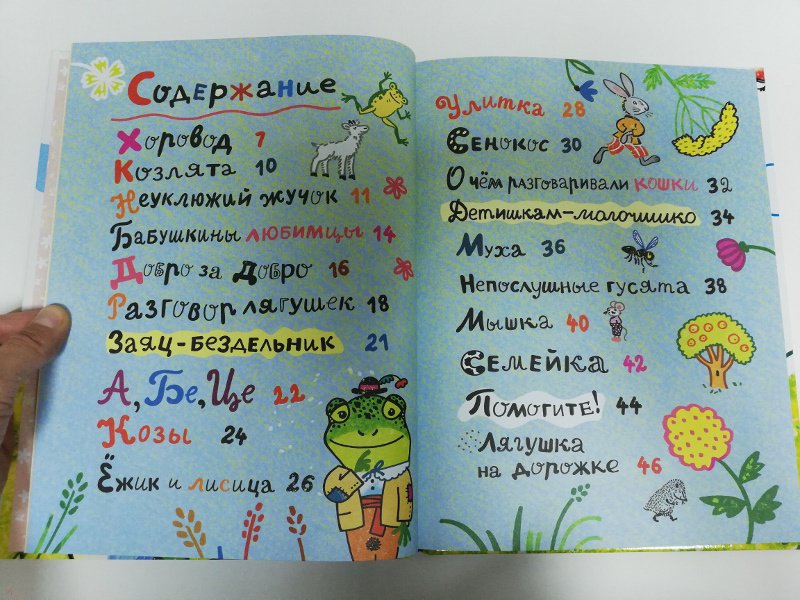 Содержание
Хоровод 7
Козлята 10
Неуклюжий жучок 11
Бабушкины любимцы 14
Добро за добро 16
Разговор лягушек 18
Заяц-бездельник 21
А, Бе, Це 22
Козы 24
Ёжик и лисица 26
Улитка 28
Сенокос 30
О чём разговаривали кошки 32
Детишкам-молочишко 34
Муха 36
Непослушные гусята 38
Мышка 40
Семейка 42
Помогите! 44
Лягушка
на дорожке 46